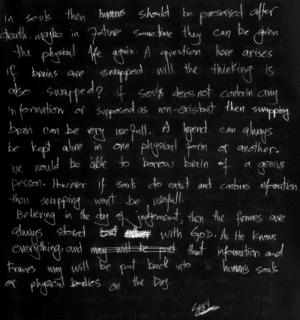 in souls then humans should be preserved after
death. maybe in future sometime they can be given
the physical life again. A question here arises
if brains are swapped will the thinking is
also swapped? if souls does not contain any
information or supposed as non-existant then swapping
brain can be very usefull. A legend can always
be kept alive in one physical form or another.
we would be able to borrow brain of a genius
person. However if souls do exist and contains information
then swapping won't be usefull.
Believing in the day of judgement, then the frames are
always stored with GOD. As He knows
everything. and that information and
frames may will be put back into humans souls
or physical bodies on the Day.